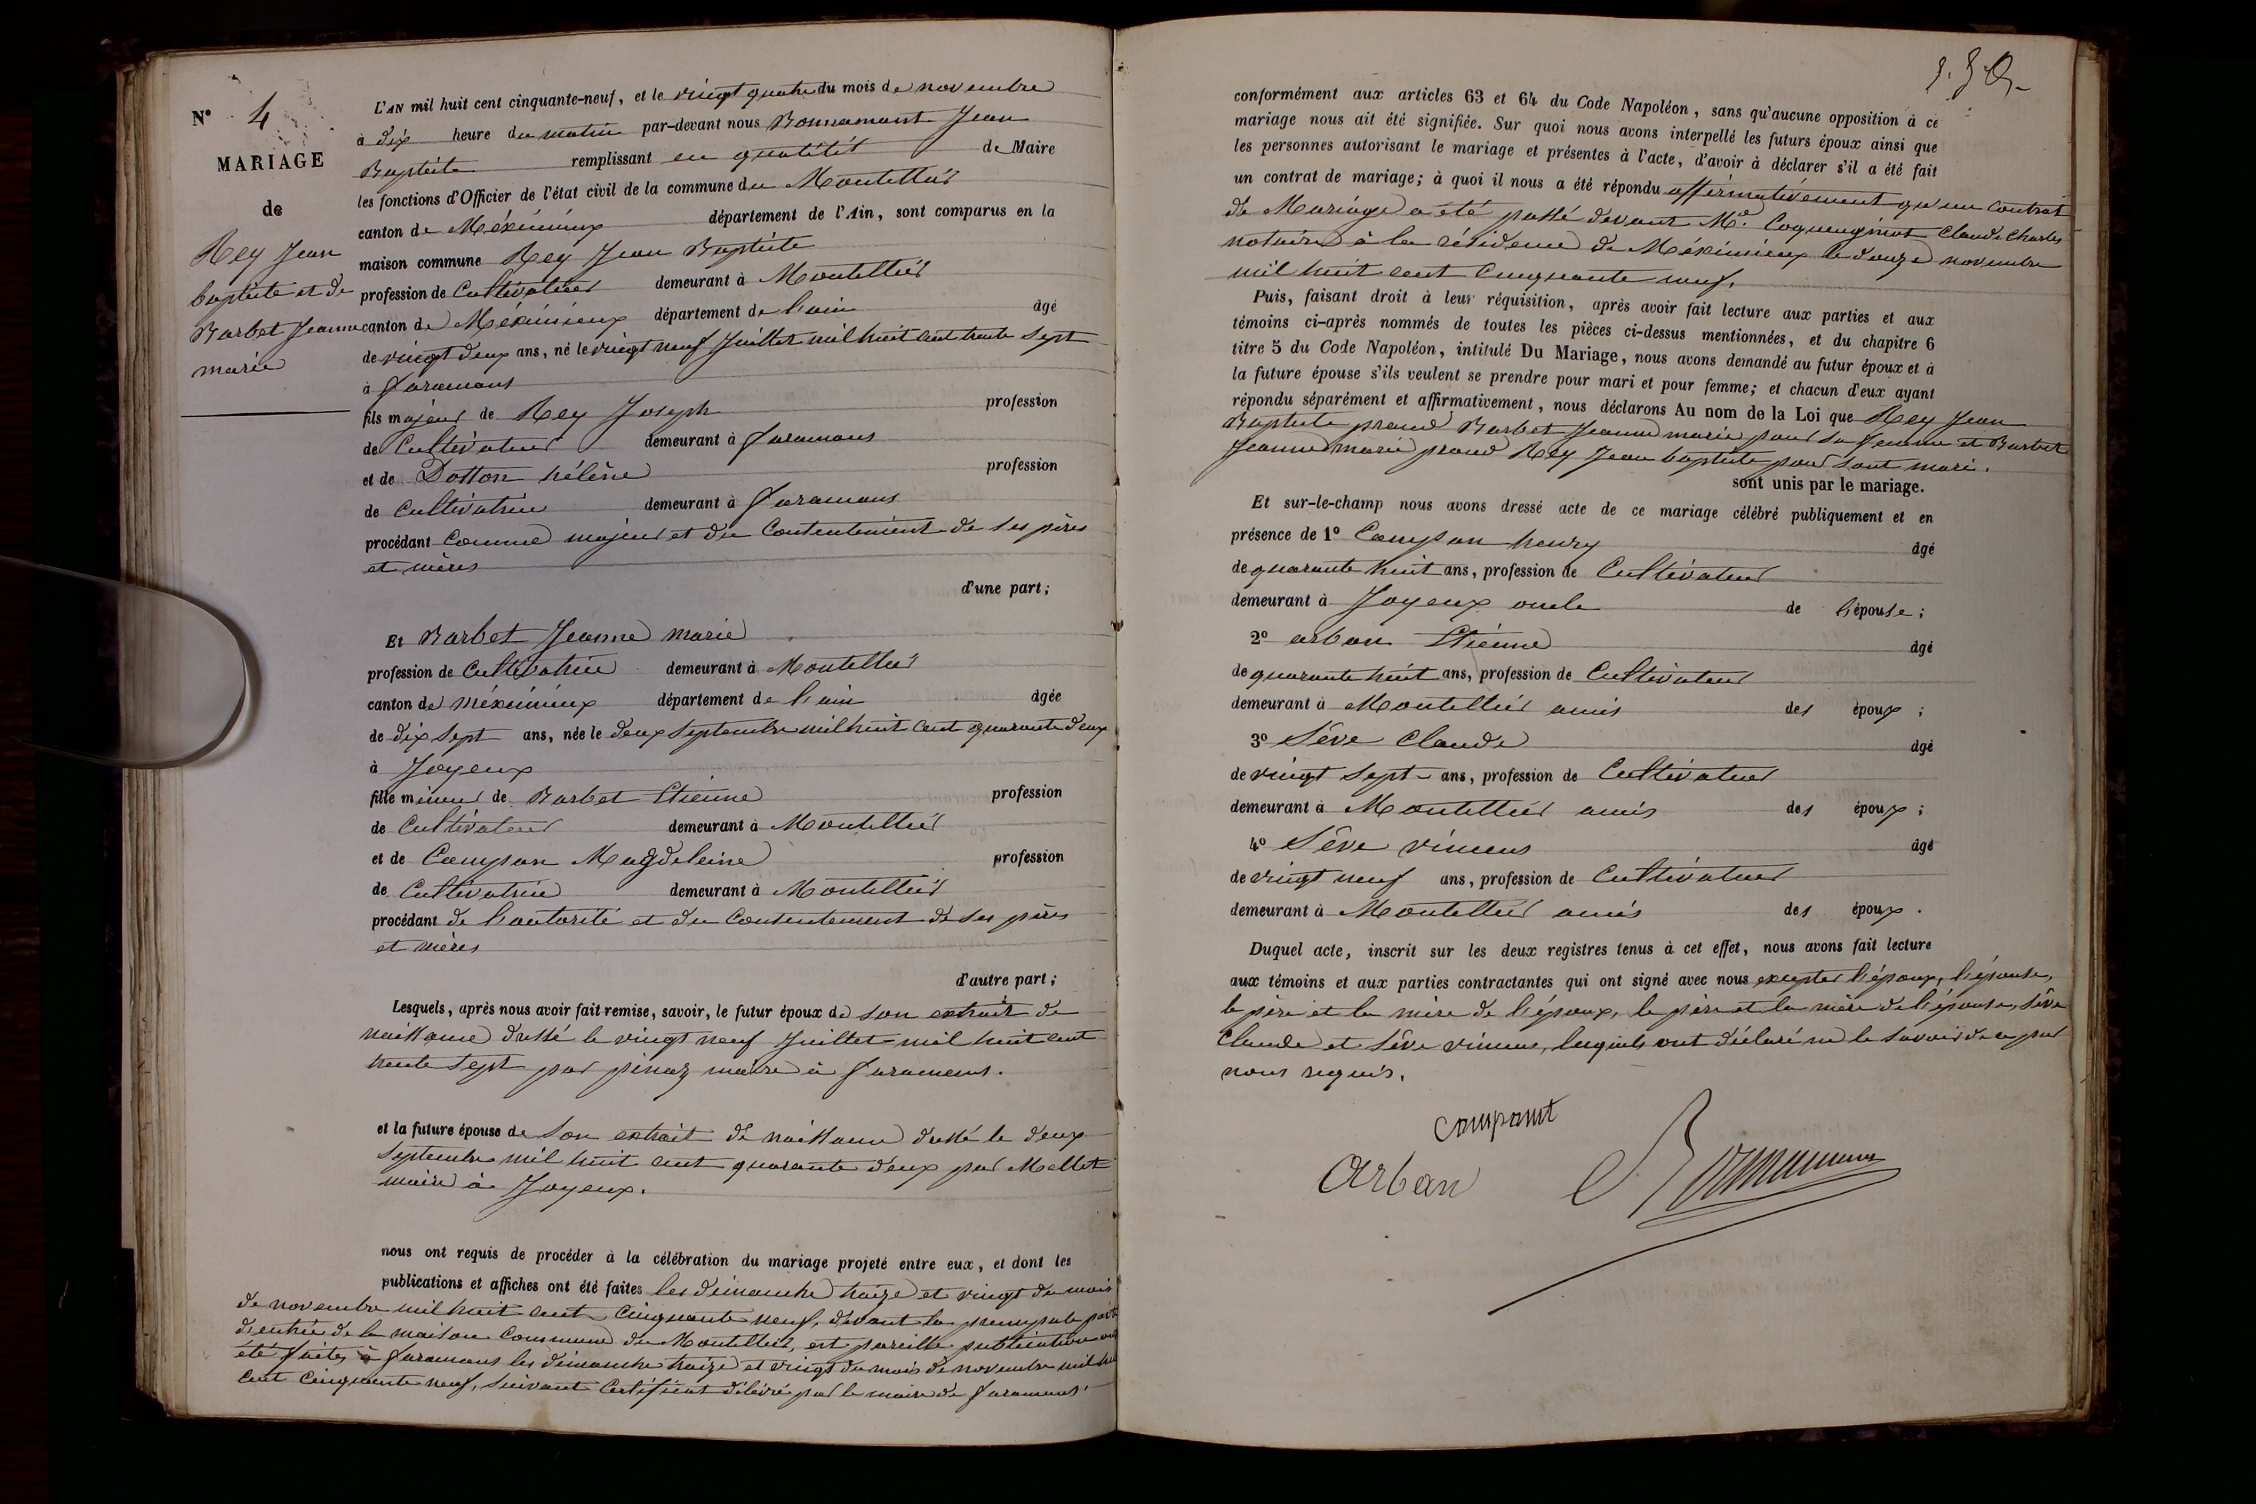 N° 4
MARIAGE
de
Rey Jean
baptiste et de
Barbet Jeanne
marie
L'AN mil huit cent cinquante-neuf, et le vingt quatre du mois de novembre
à dix heure du matin par-devant nous Bonnamant Jean
Baptiste remplissant en qualitét de Maire
les fonctions d'Officier de l'état civil de la commune du Montellier
canton de Méximieux département de l'Ain, sont comparus en la
maison commune Rey Jean Baptiste
profession de Cultivateur demeurant à Montellier
canton de Méximieux département de l'ain âgé
de vingt deux ans, né le vingt neuf Juillet mil huit cent trente sept
à faramans
fils majeur de Rey Joseph profession
de Cultivateur demeurant à faramans
et de Dotton hélène profession
de Cultivatrice demeurant à faramans
procédant comme majeur et du Contentement de ses pères
et mères
d'une part;
Et Barbet Jeanne marie
profession de Cultivatrice demeurant à Montellier
canton de méximieux département de l'ain âgée
de dix sept ans, née le deux septembre mil huit cent quarante deux
à Joyeux
fille mineur de Barbet Etienne profession
de Cultivateur demeurant à Montellier
et de Compan Magdeleine profession
de Cultivatrice demeurant à Montellier
procédant de l'autorité et du Contentement de ses pères
et mères
d'autre part;
Lesquels, après nous avoir fait remise, savoir, le futur époux de son extrait de
naissance dressé le vingt neuf Juillet mil huit cent
trente sept par pinaz maire à faramans.
et la future épouse de son extrait de naissance dressé le deux
septembre mil huit cent quarante deux par Mollet
maire à Joyeux.
nous ont requis de procéder à la célébration du mariage projeté entre eux, et dont les
publications et affiches ont été faites les dimanche traize et vingt du mois
de novembre mil huit cent cinquante neuf, devant la principale porte
d'entrée de la maison Commune du Montellier, est pareille publication ont
été faites à faramans les dimanche traize et vingt du mois de novembre mil huit
cent cinquante neuf, suivant Certificat délivré par le maire de faramans.
conformément aux articles 63 et 64 du Code Napoléon, sans qu'aucune opposition à ce
mariage nous ait été signifiée. Sur quoi nous avons interpellé les futurs époux ainsi que
les personnes autorisant le mariage et présentes à l'acte, d'avoir à déclarer s'il a été fait
un contrat de mariage; à quoi il nous a été répondu affirmativement qu'un contrat
de Mariage a été passé devant Me. Coquengniot Claude Charles
notaire à la résidence de Méximieux le douze novembre
mil huit cent cinquante neuf.
Puis, faisant droit à leur réquisition, après avoir fait lecture aux parties et aux
témoins ci-après nommés de toutes les pièces ci-dessus mentionnées, et du chapitre 6
titre 5 du Code Napoléon, intitulé Du Mariage, nous avons demandé au futur époux et à
la future épouse s'ils veulent se prendre pour mari et pour femme; et chacun d'eux ayant
répondu séparément et affirmativement, nous déclarons Au nom de la Loi que Rey Jean
Baptiste prand Barbet Jeanne marie pour sa femme et Barbet
Jeanne marie prand Rey Jean baptiste pour sont mari.
sont unis par le mariage.
Et sur-le-champ nous avons dressé acte de ce mariage célébré publiquement et en
présence de 1° Compan henry âgé
de quarante huit ans, profession de Cultivateur
demeurant à Joyeux oncle de l'épouse;
2° arban Etienne âgé
de quarante huit ans, profession de Cultivateur
demeurant à Montellier amis des époux;
3° Sève Claude âgé
de vingt sept ans, profession de Cultivateur
demeurant à Montellier amis des époux;
4° Sève vincens âgé
de vingt neuf ans, profession de Cultivateur
demeurant à Montellier amis des époux.
Duquel acte, inscrit sur les deux registres tenus à cet effet, nous avons fait lecture
aux témoins et aux parties contractantes qui ont signé avec nous excepter l'époux, l'épouse,
le père et la mère de l'époux, le père et la mère de l'épouse, Sève
Claude et Sève vincens, lesquels ont déclaré ne le savoir de ce par
nous requis.
compamt
arban
Bonnamant